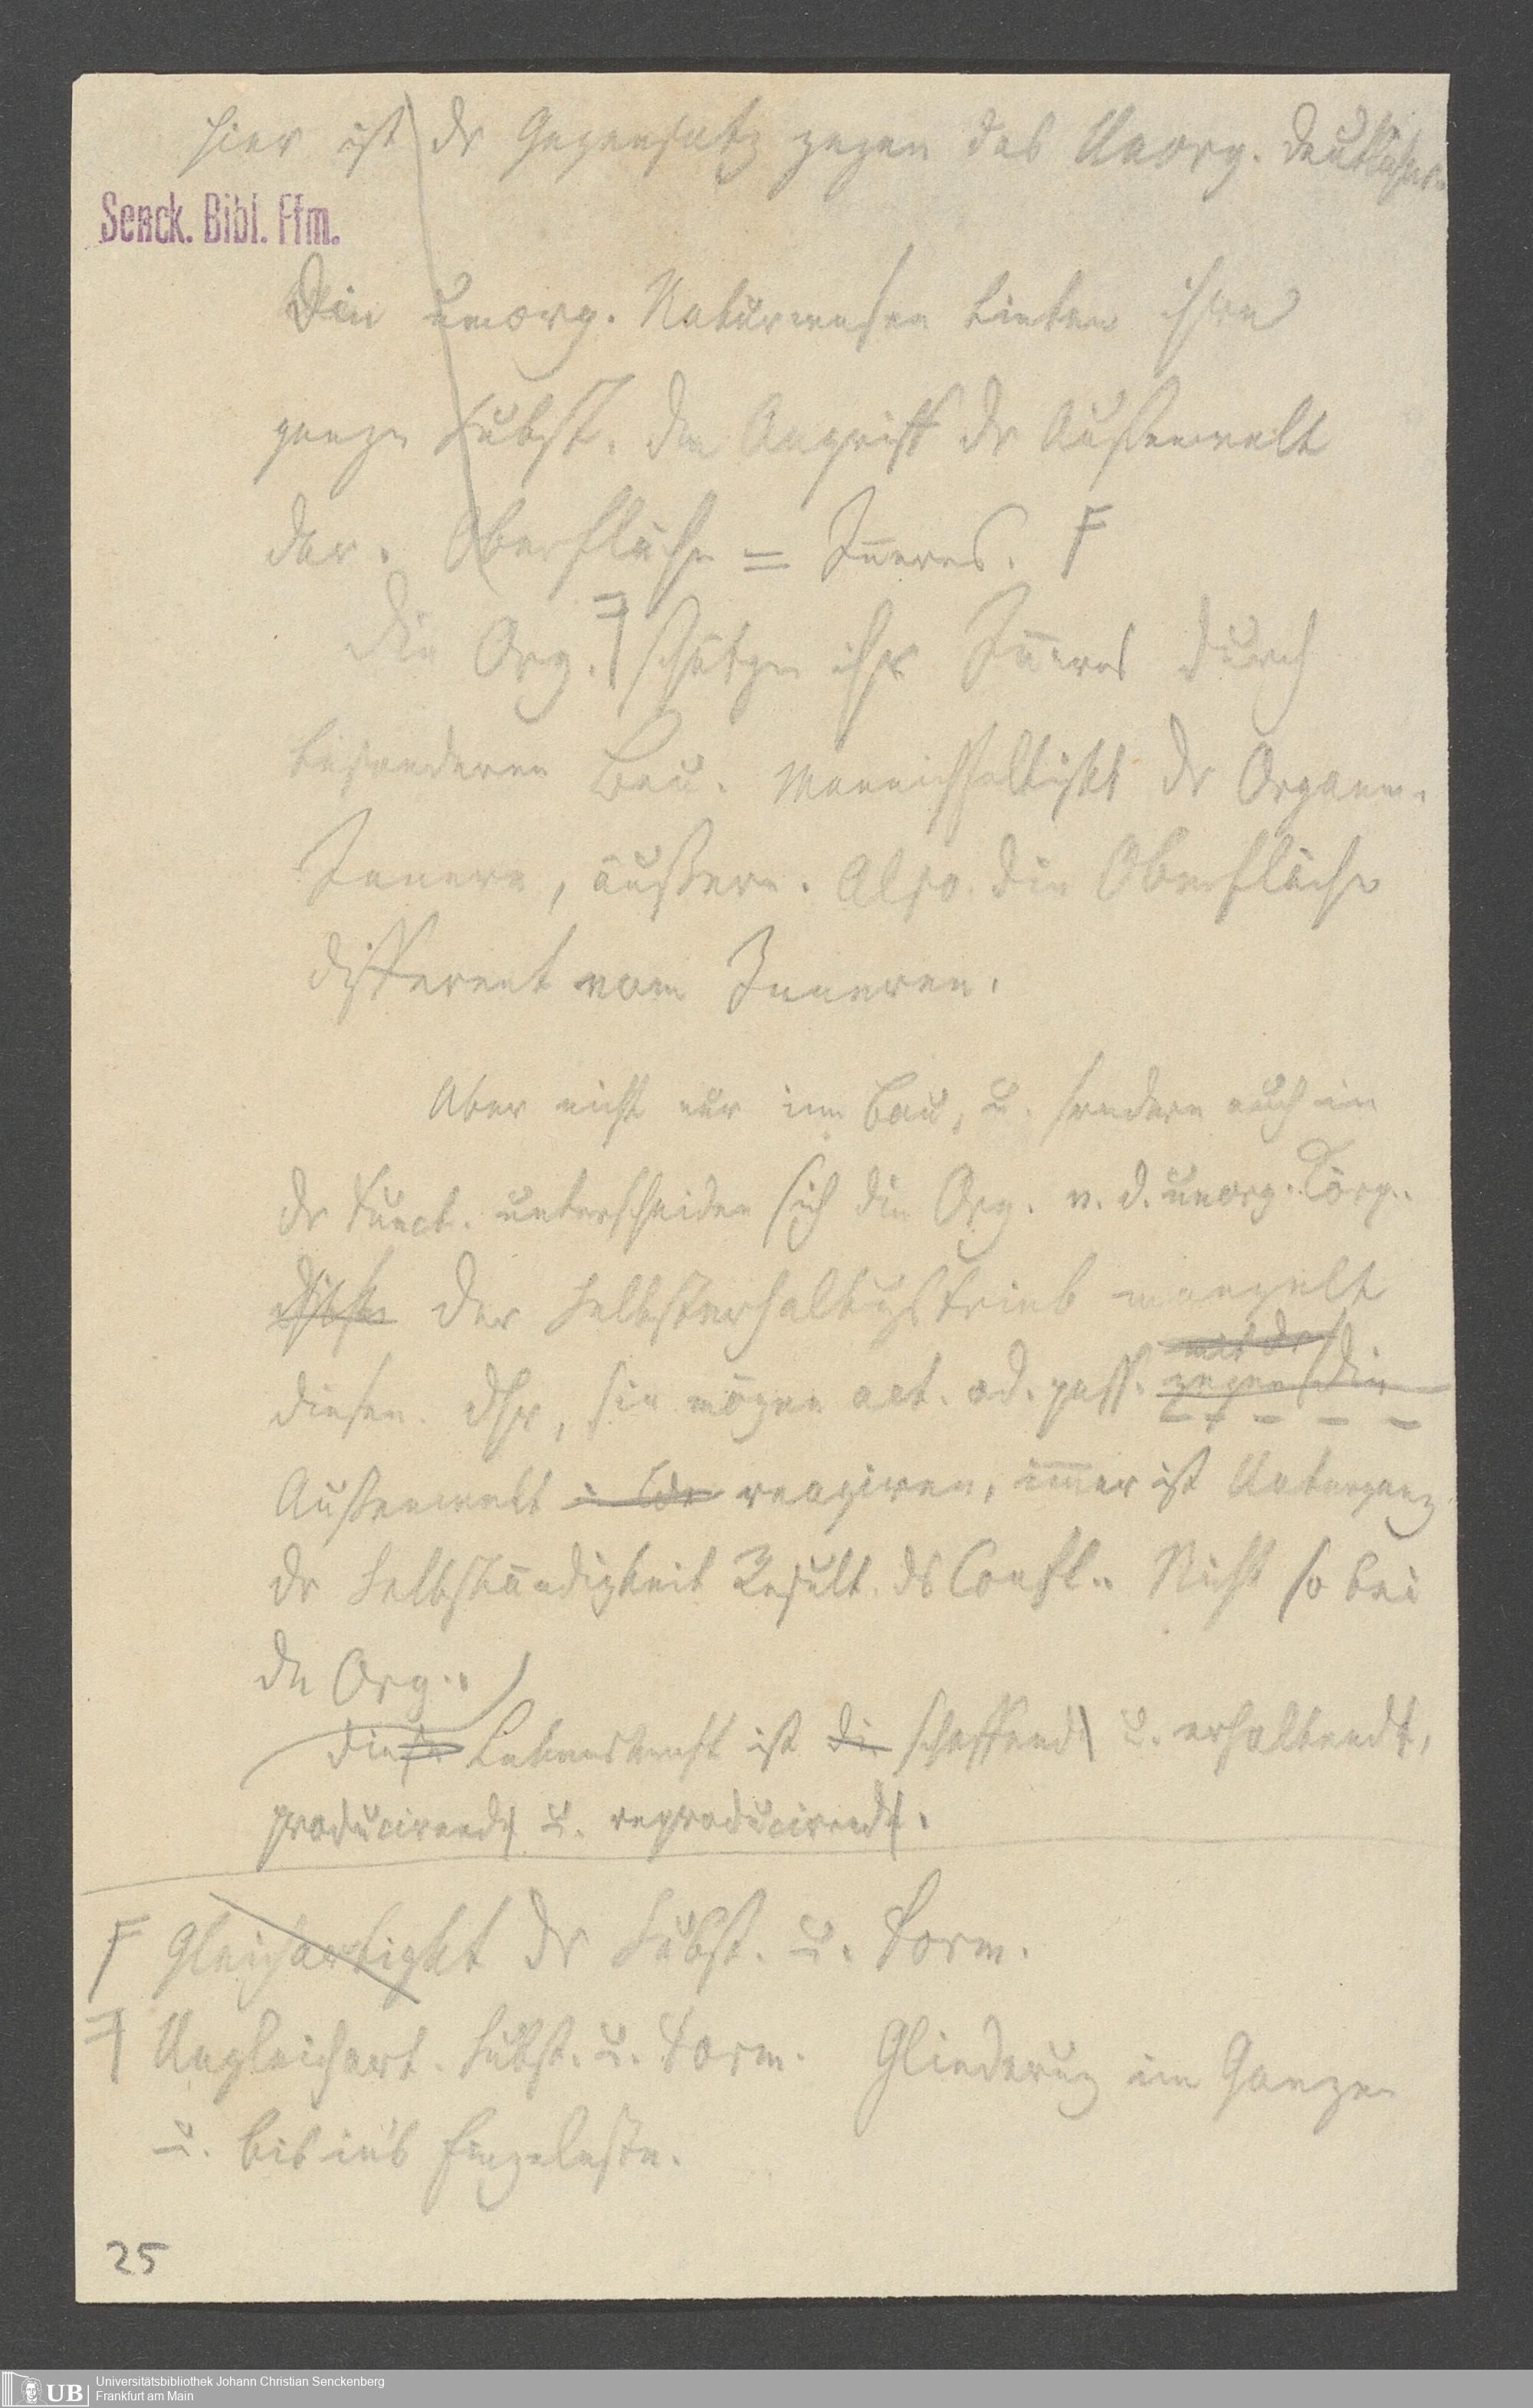 hier ist dr Gegensatz gegen das Unorg. deutlicher.
Senck. Bibl. Ffm.
Die unorg. Naturwesen bieten ihre
ganze Subst. dem Angriff dr Außenwelt
dar. Oberfläche = Inneres. F
Die Org. schützen ihr Inneres durch
besonderen Bau. Mannichfaltigkt dr Organe.
Innere, äußere. Also die Oberfläche
different vom Inneren.
Aber nicht nur im Bau, u. sondern auch in
dr Funct. unterscheiden sich die Org. v. d. unorg. Körp.
Der Selbsterhaltugstrieb mangelt
diesen. Dh, sie mögen act. od. pass. gegen die
Außenwelt reagiren, immer ist Untergang
dr Selbständigkeit Result. ds Confl.. Nicht so bei
den Org..
Die Lebenskraft ist schaffend u. erhaltend,
producirend u. reproducirend.
F Gleichartigkt dr Subst. u. Form.
Ungleichart. Subst. u. Form. Gliederug im Ganzen
u. bis in's Einzelnste.
25
UB Universitätsbibliothek Johann Christian Senckenberg
Frankfurt am Main